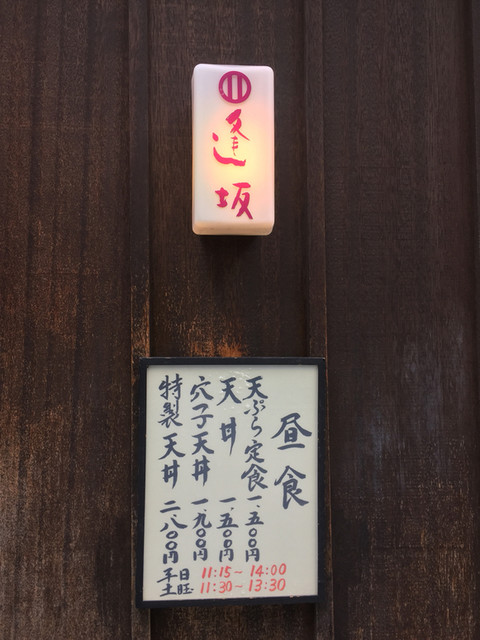 逢坂
昼食
天ぷら定食 一、五〇〇円
天丼 一、五〇〇円
穴子天丼 一、九〇〇円
特製天丼 二、八〇〇円
平日 11:15~14:00
土 11:30~13:30